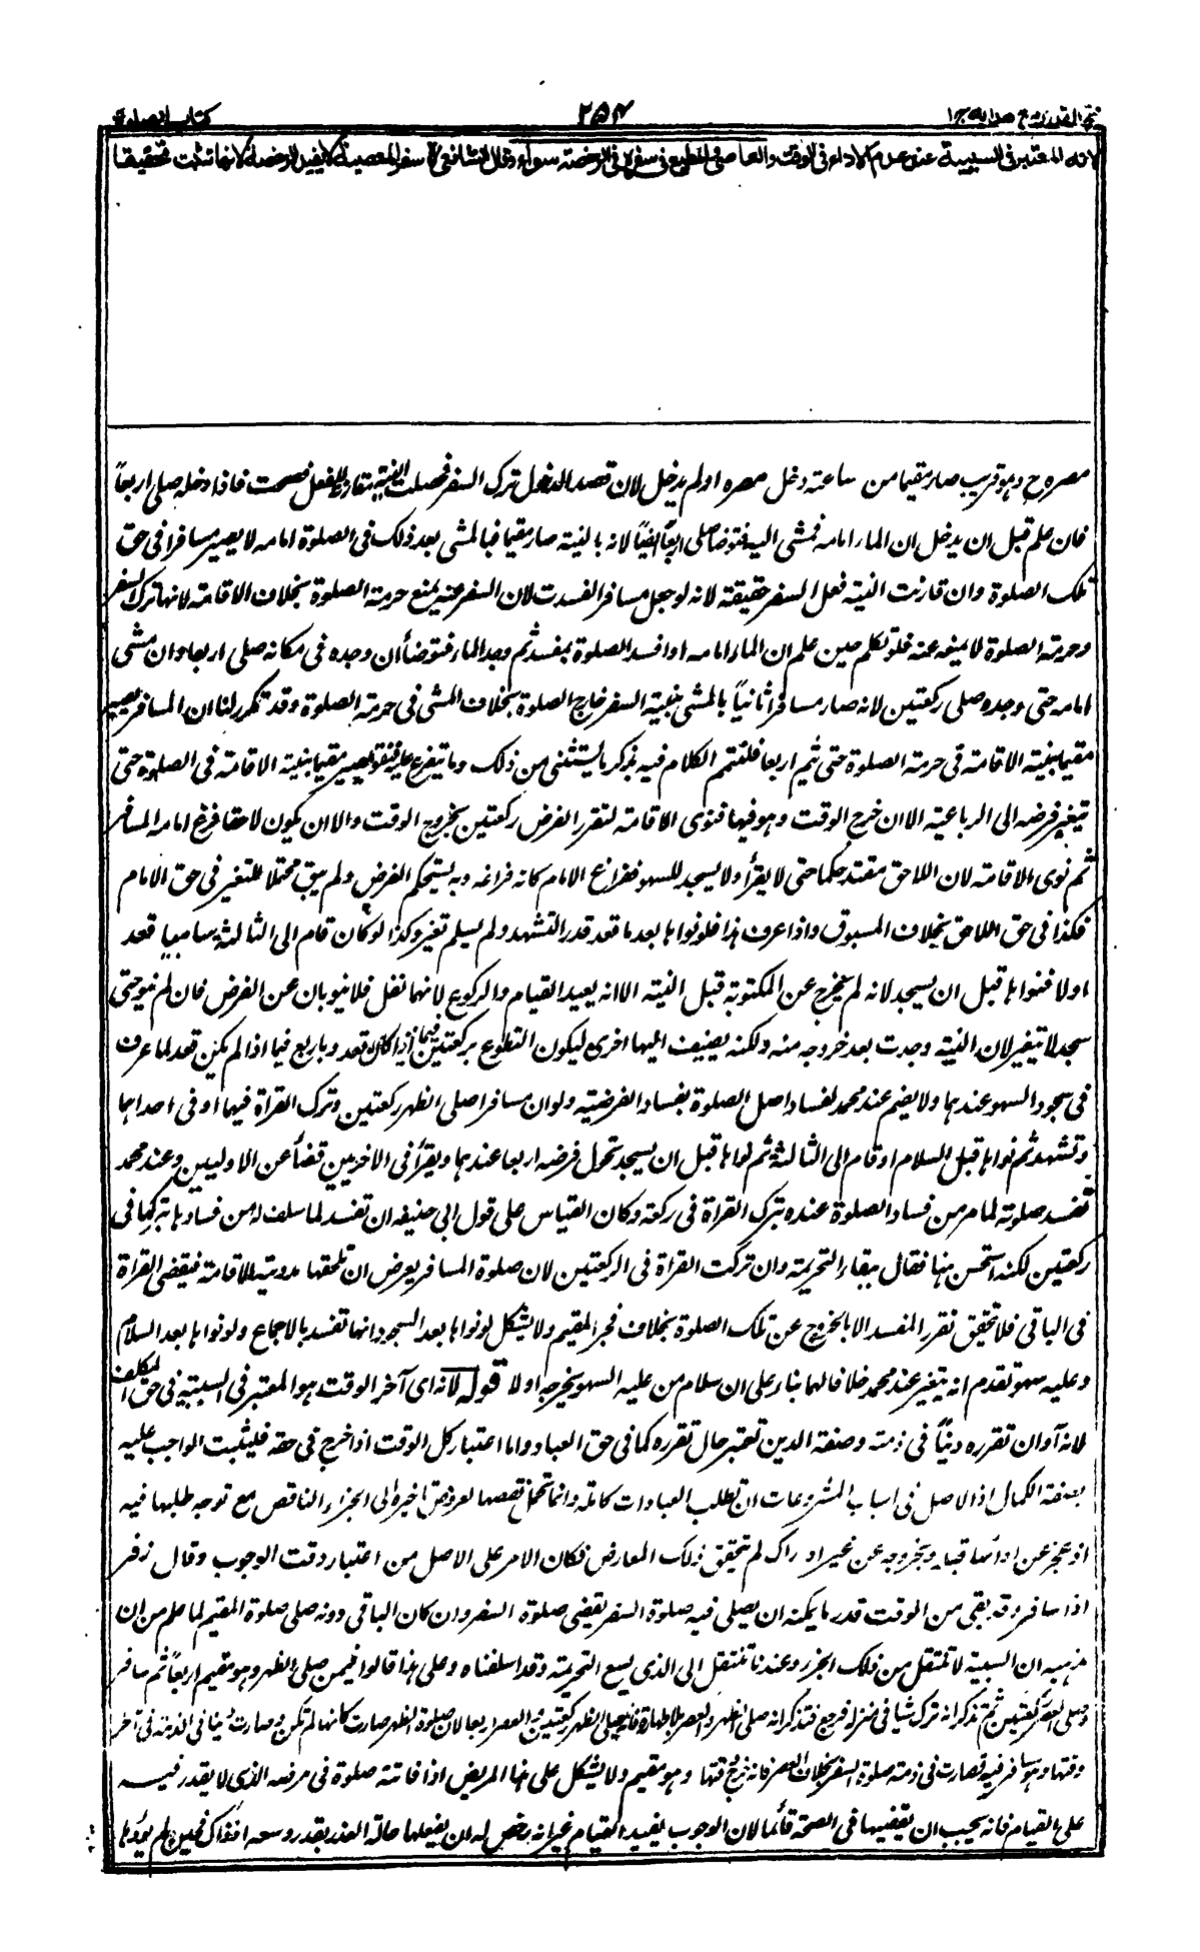 فتح القدير مع هداية ج١ ٢٥٤ كتاب الصلوة
لانه المعتبر فى السببية عند عدم الاداء فى الوقت والعاصى والمطيع فى سفرهما فى الرخصة سواء وقال الشافعى سفر المعصية لا يفيد الرخصة لانها تثبت تخفيفا
مصره ح وهو قريب صار مقيما من ساعته دخل مصره او لم يدخل لان قصد الدخول ترك السفر فحصلت النية مقارنة للفعل فصحت فاذا دخله صلى اربعاً
فان علم قبل ان يدخل ان الماء امامه فمشى اليه فتوضأ صلى اربعاً ايضاً لانه بالنية صار مقيما فبالمشى بعد ذلك فى الصلوة امامه لا يصير مسافرا فى حق
تلك الصلوة وان قارنت النية فعل السفر حقيقة لانه لو جعل مسافرا لفسدت لان السفر عنه يمنع حرمة الصلوة بخلاف الاقامة لانها ترك السفر
وحرمة الصلوة لا تمنعه عنه فلو تكلم حين علم ان الماء امامه او افسد الصلوة بمفسد ثم وجد الماء فتوضأ ان وجده فى مكانه صلى اربعا وان مشى
امامه حتى وجده صلى ركعتين لانه صار مسافرا ثانياً بالمشى بنية السفر خارج الصلوة بخلاف المشى فى حرمة الصلوة وقد تكرر لنا ان المسافر يصير
مقيما بنية الاقامة فى حرمة الصلوة حتى يتم اربعا فلنتمم الكلام فيه بذكر ما يستثنى من ذلك وما يتفرع عليه فنقول يصير مقيما بنية الاقامة فى الصلوة حتى
يتغير فرضه الى الرباعية الا ان خرج الوقت وهو فيها فنوى الاقامة لتقرر الفرض ركعتين بخروج الوقت والا ان يكون لاحقا فرغ امامه المسافر
ثم نوى الاقامة لان اللاحق مقتد حكما حتى لا يقرأ ولا يسجد للسهو ففراغ الامام كانه فراغه وبه يستحكم الفرض ولم يبق محتملا للتغير فى حق الامام
فكذا فى حق اللاحق بخلاف المسبوق واذا عرف هذا فلو نواها بعد ما قعد قدر التشهد ولم يسلم تغير وكذا لو كان قام الى الثالثة ساهيا قعد
اولا فنواها قبل ان يسجد لانه لم يخرج عن المكتوبة قبل النية الا انه يعيد القيام والركوع لانهما نفل فلا ينوبان عن الفرض فان لم ينو حتى
سجد لا يتغير لان النية وجدت بعد خروجه منه ولكنه يضيف اليها اخرى ليكون التطوع بركعتين فيما اذا كان قعد وباربع فيما اذا لم يكن قعد لما عرف
فى سجود السهو عندهما ولا يضم عند محمد لفساد اصل الصلوة بفساد الفرضية ولو ان مسافرا صلى الظهر ركعتين وترك القراة فيهما او فى احداهما
وتشهد ثم نواها قبل السلام او قام الى الثالثة ثم نواها قبل ان يسجد تحول فرضه اربعا عندهما ويقرأ فى الاخريين قضاً عن الاوليين وعند محمد
تفسد صلوته لما مر من فساد الصلوة عنده بترك القراة فى ركعة وكان القياس على قول ابى حنيفه ان تفسد لما سلف له من فسادها بتركها فى
ركعتين لكنه استحسن هنا فقال ببقاء التحريمة وان تركت القراة فى الركعتين لان صلوة المسافر بعرض ان تلحقها مدة الاقامة فيقضى القراة
فى الباقى فلا تحقق تقرر المفسد الا بالخروج عن تلك الصلوة بخلاف فجر المقيم ولا يشكل لو نواها بعد السجود انها تفسد بالاجماع ولو نواها بعد السلام
وعليه سهو تقدم انه يتغير عند محمد خلافا لهما بناء على ان سلام من عليه السهو يخرجه او لا قوله لانه اى آخر الوقت هو المعتبر فى السببية فى حق المكلف
لانه آوان تقرره ديناً فى ذمته وصفة الدين تعتبر حال تقرره كما فى حق العباد واما اعتبار كل الوقت اذا خرج فى حقه فليثبت الواجب عليه
بصفة الكمال اذ الاصل فى اسباب المشروعات ان تطلب العبادات كاملة وانما تحمل نقصها لعروض تاخيره الى الجزء الناقص مع توجه طلبها فيه
اذ عجز عن ادائها قبله وبخروجه عن غير ادراك لم يتحقق ذلك المعارض فكان الامر على الاصل من اعتبار وقت الوجوب وقال زفر
اذا سافر وقد بقى من الوقت قدر ما يمكنه ان يصلى فيه صلوة السفر يقضى صلوة السفر وان كان الباقى دونه صلى صلوة المقيم لما علم من ان
مذهبه ان السببية لا تنتقل من ذلك الجزء وعندنا تنتقل الى الذى يسع التحريمة وقد اسلفناه وعلى هذا قالوا فيمن صلى الظهر وهو مقيم اربعاً ثم سافر
وصلى العصر ركعتين ثم تذكر انه ترك شيا فى منزله فرجع فتذكر انه صلى الظهر والعصر بلا طهارة فانه يصلى الظهر ركعتين والعصر اربعا لان صلوة الظهر صارت كانها لم تكن وصارت دينا فى الذمة فى آخر
وقتها وهو مسافر فيه فصارت فى ذمته صلوة السفر بخلاف العصر فانه خرج وقتها وهو مقيم ولا يشكل على هذا المريض اذا فاتته صلوة فى مرضه الذى لا يقدر فيه
على القيام فانه يجب ان يقضيها فى الصحة قائما لان الوجوب بقيد القيام غير انه رخص له ان يفعلها حالة العذر بقدر وسعه اذ ذاك فحين لم يؤدها